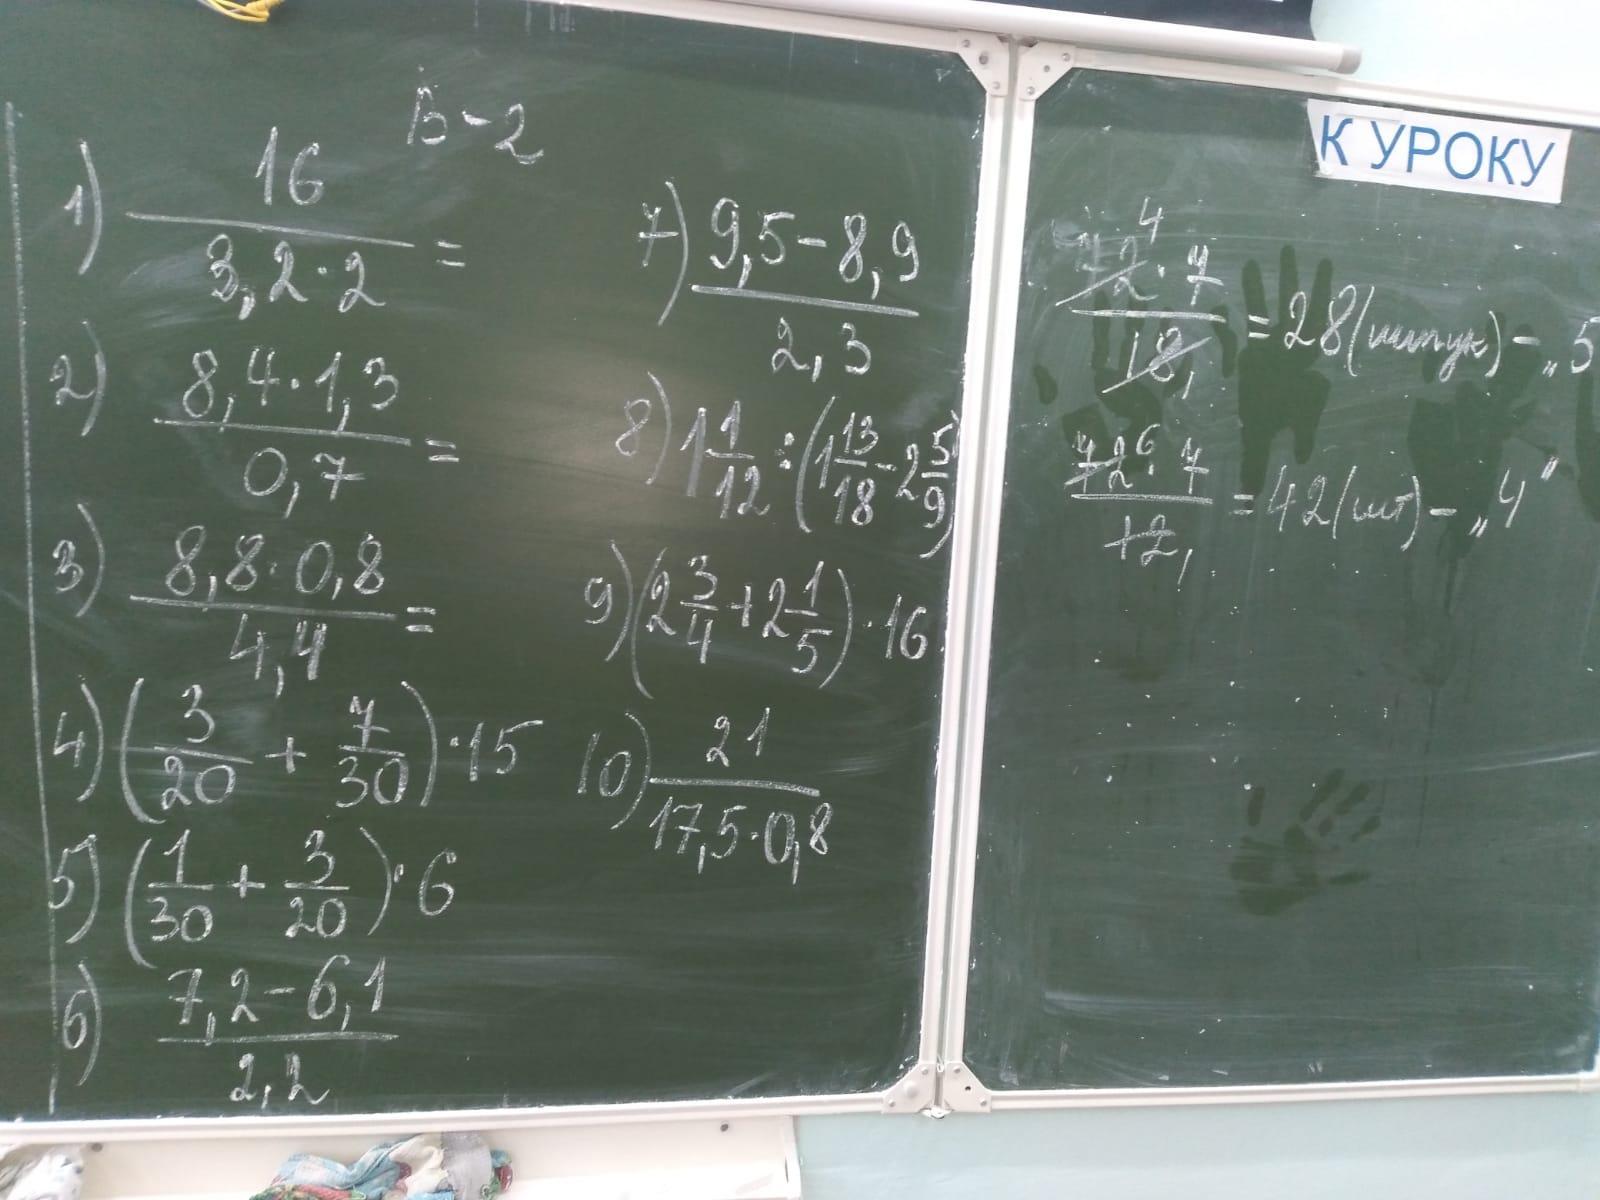 В-2
1) 16/(3,2·2) =
2) (8,4·1,3)/0,7 =
3) (8,8·0,8)/4,4 =
4) (3/20 + 7/30)·15
5) (1/30 + 3/20)·6
6) (7,2-6,1)/2,2
7) (9,5-8,9)/2,3
8) 1 1/12 : (1 13/18 - 2 5/9)
9) (2 3/4 + 2 1/5)·16
10) 21/(17,5·0,8)
К УРОКУ
4
72·7/18 = 28 (штук) - „5
6
72·7/12 = 42 (шт) - „4"